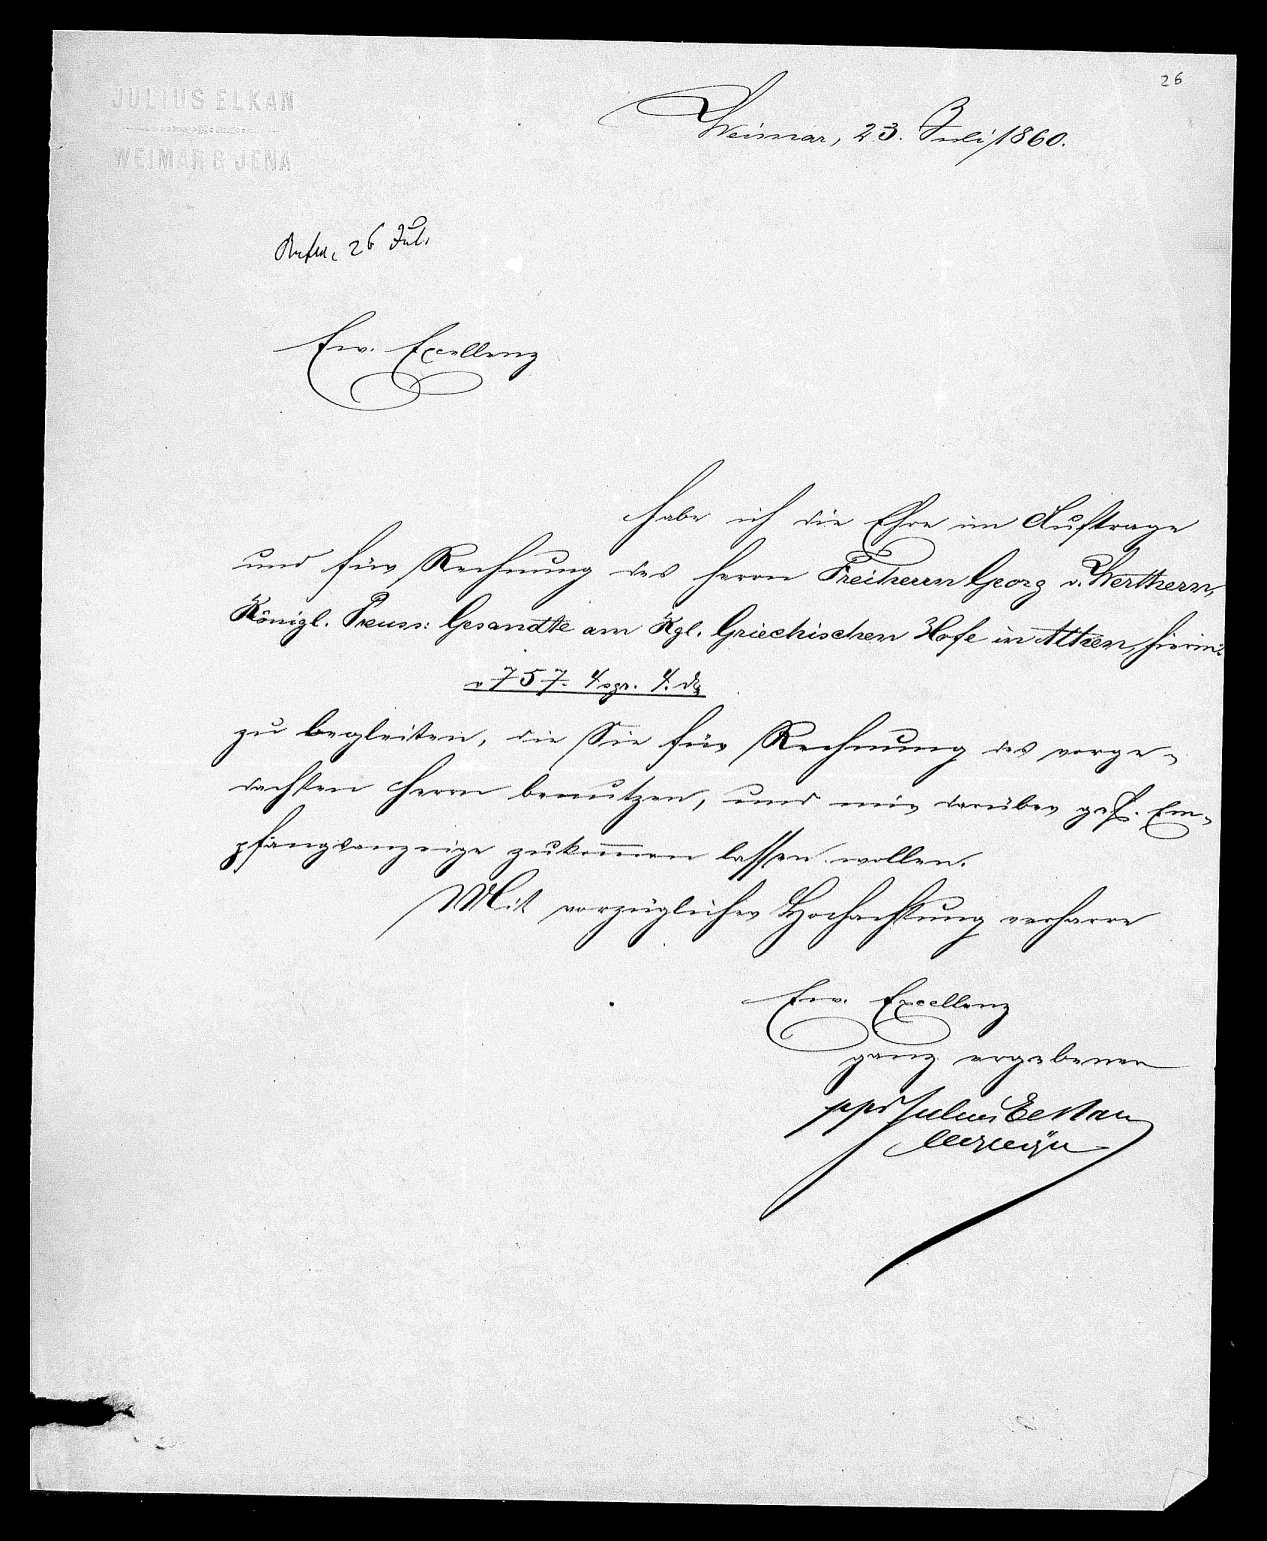 26
JULIUS ELKAN
WEIMAR & JENA
Weimar, 23. Juli 1860.
26 Juli
Ew. Excellenz
habe ich die Ehre im Auftrage
und für Rechnung des Herrn Freiherrn Georg v. Werthern,
Königl. Preuss: Gesandte am Kgl. Griechischen Hofe in Athen, hierin
757. sgr.
zu begleiten, die Sie für Rechnung des vorge-
dachten Herrn benutzen, und mir darüber gef. Em-
pfangsanzeige zukommen lassen wollen.
Mit vorzüglicher Hochachtung verharre
Ew. Excellenz
ganz ergebener
ppa Julius Elkan